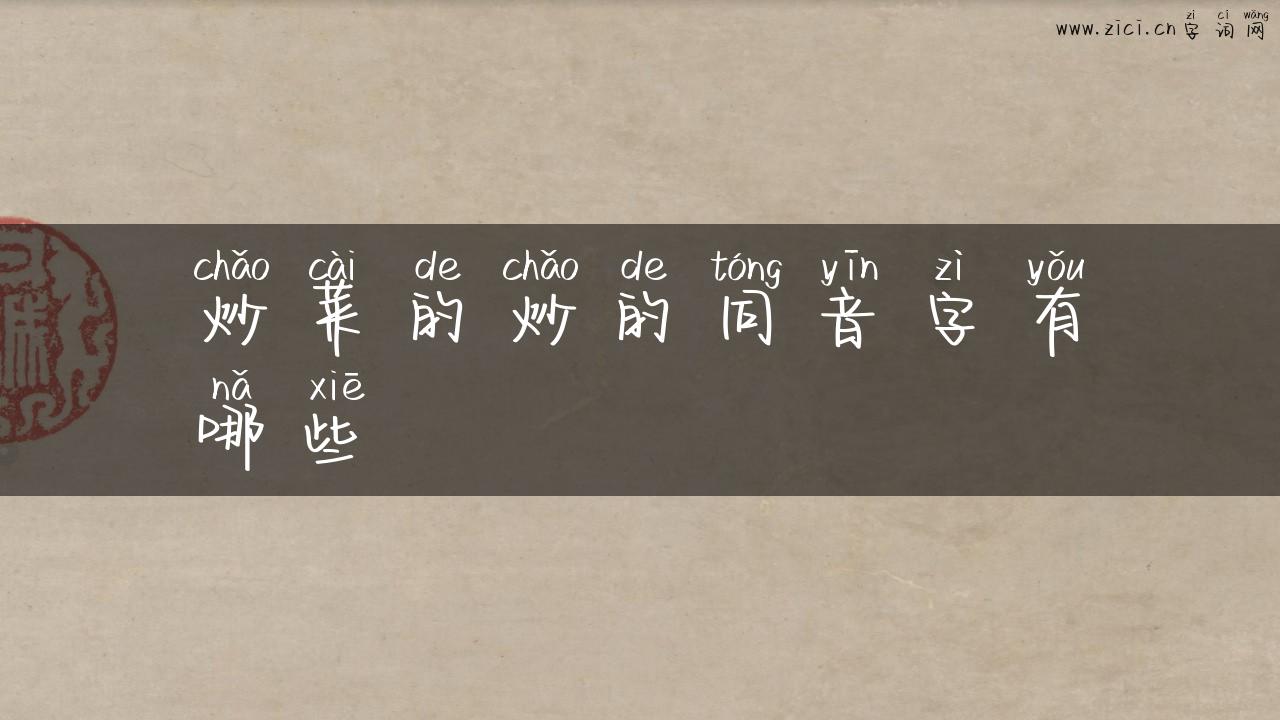 zì cí wǎng
www.zici.cn 字词网
chǎo cài de chǎo de tóng yīn zì yǒu
炒菜的炒的同音字有
nǎ xiē
哪些